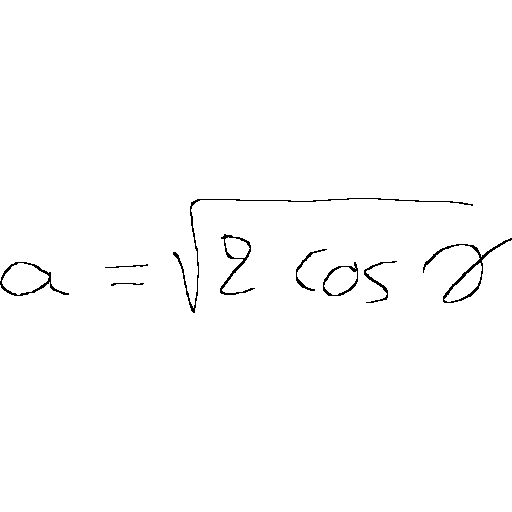 a = √(2 cos γ)